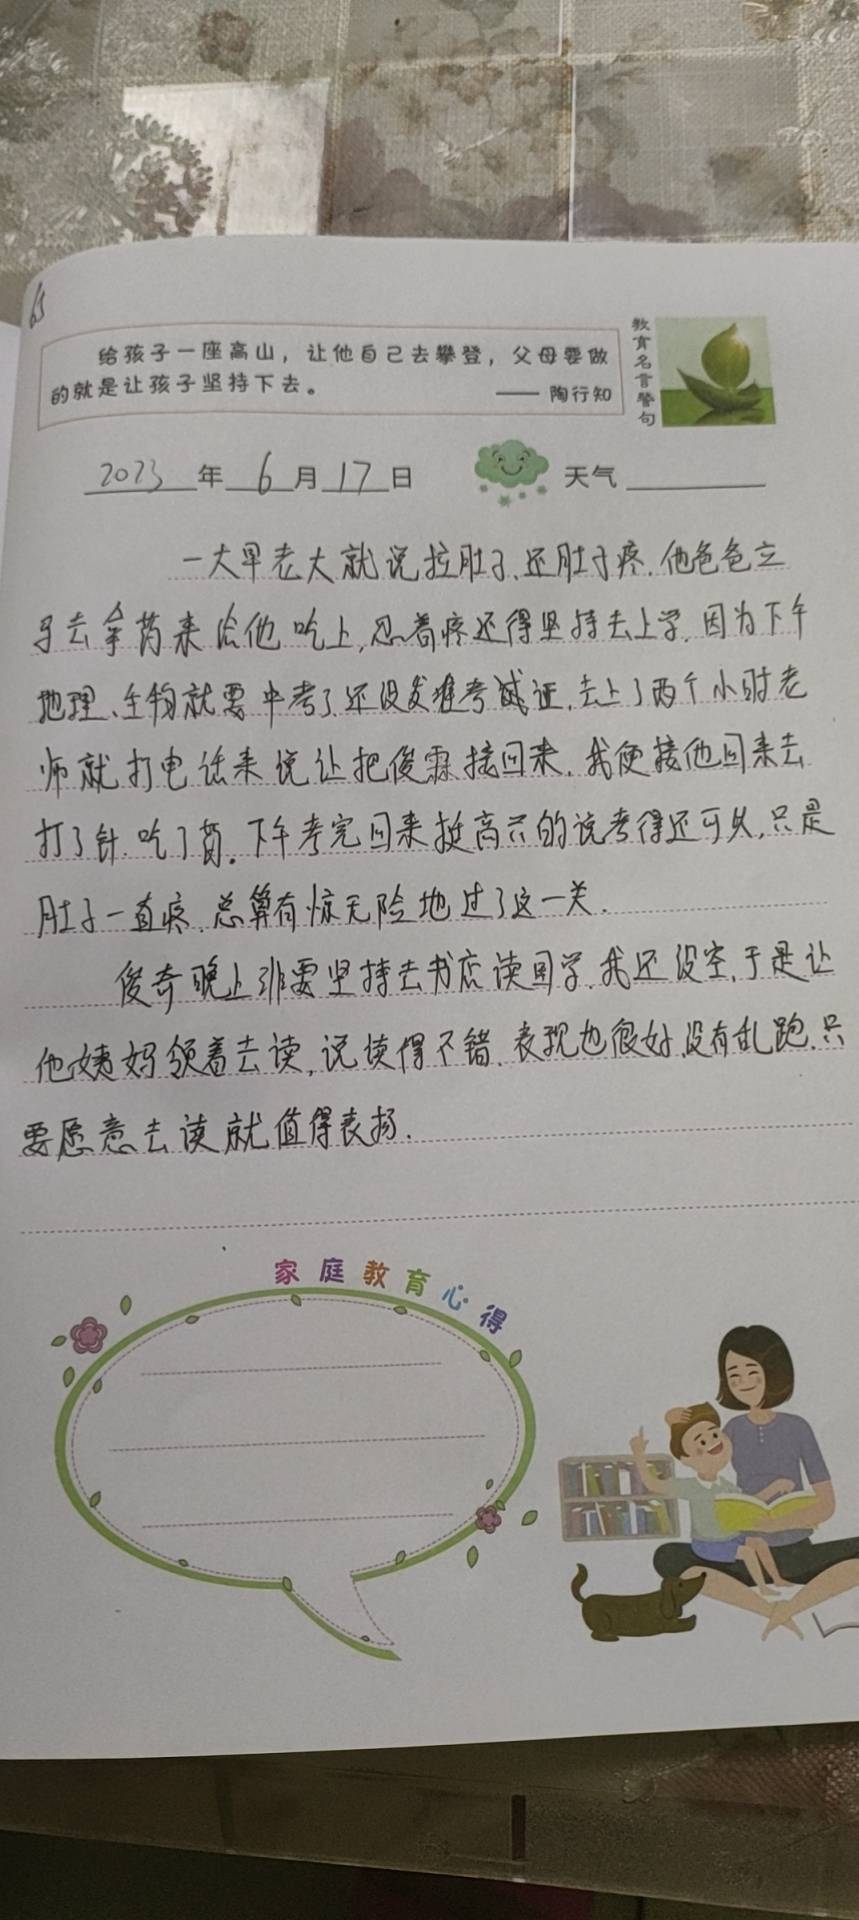 65
给孩子一座高山，让他自己去攀登，父母要做
的就是让孩子坚持下去。
—— 陶行知
教育名言警句
2023年6月17日 天气
一大早老大就说拉肚子、还肚子疼.他爸爸立
马去拿药来给他吃上,忍着疼还得坚持去上学,因为下午
地理、生物就要中考了还没发准考试证,去上了两个小时老
师就打电话来说让把俊霖接回来,我便接他回来去
打了针.吃了药。下午考完回来挺高兴的说考得还可以,只是
肚子一直疼.总算有惊无险地过了这一关.
俊奇晚上非要坚持去书店读国学,我还没空,于是让
他姨妈领着去读,说读得不错.表现也很好,没有乱跑.只
要愿意去读就值得表扬.
家庭教育心得